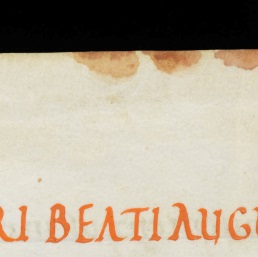 RI BEATI AUGU